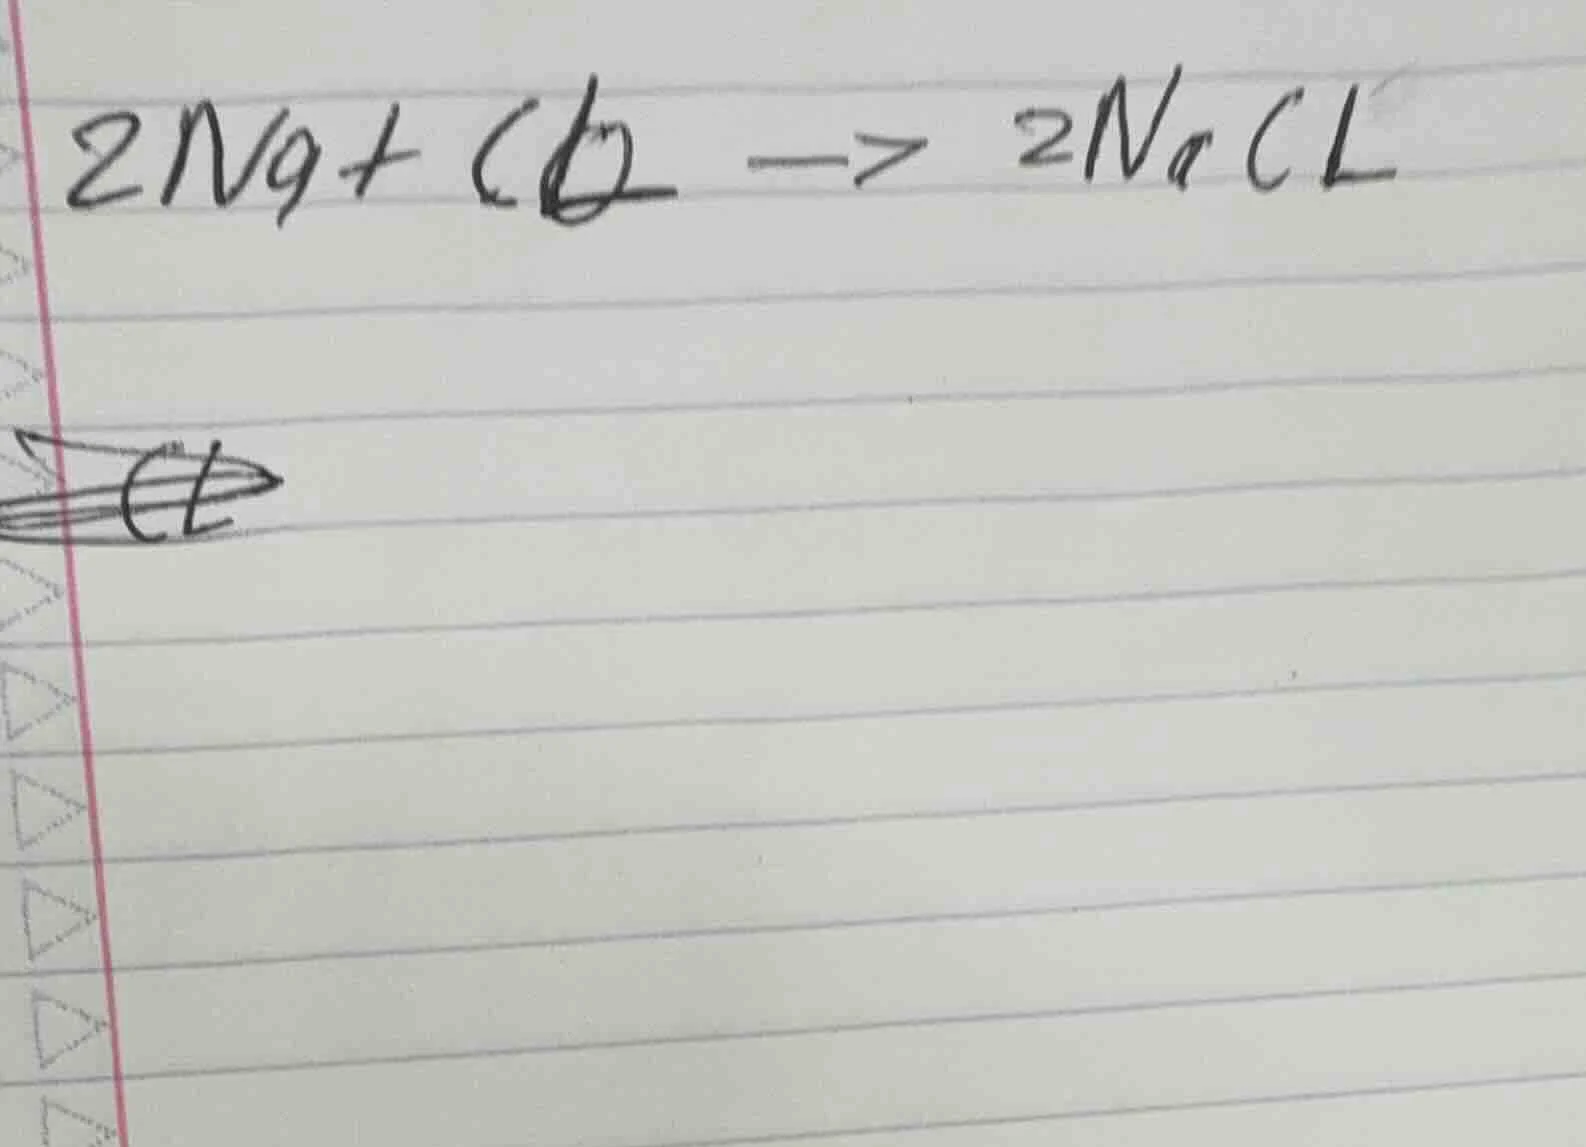 2Na + Cl2 -> 2NaCL